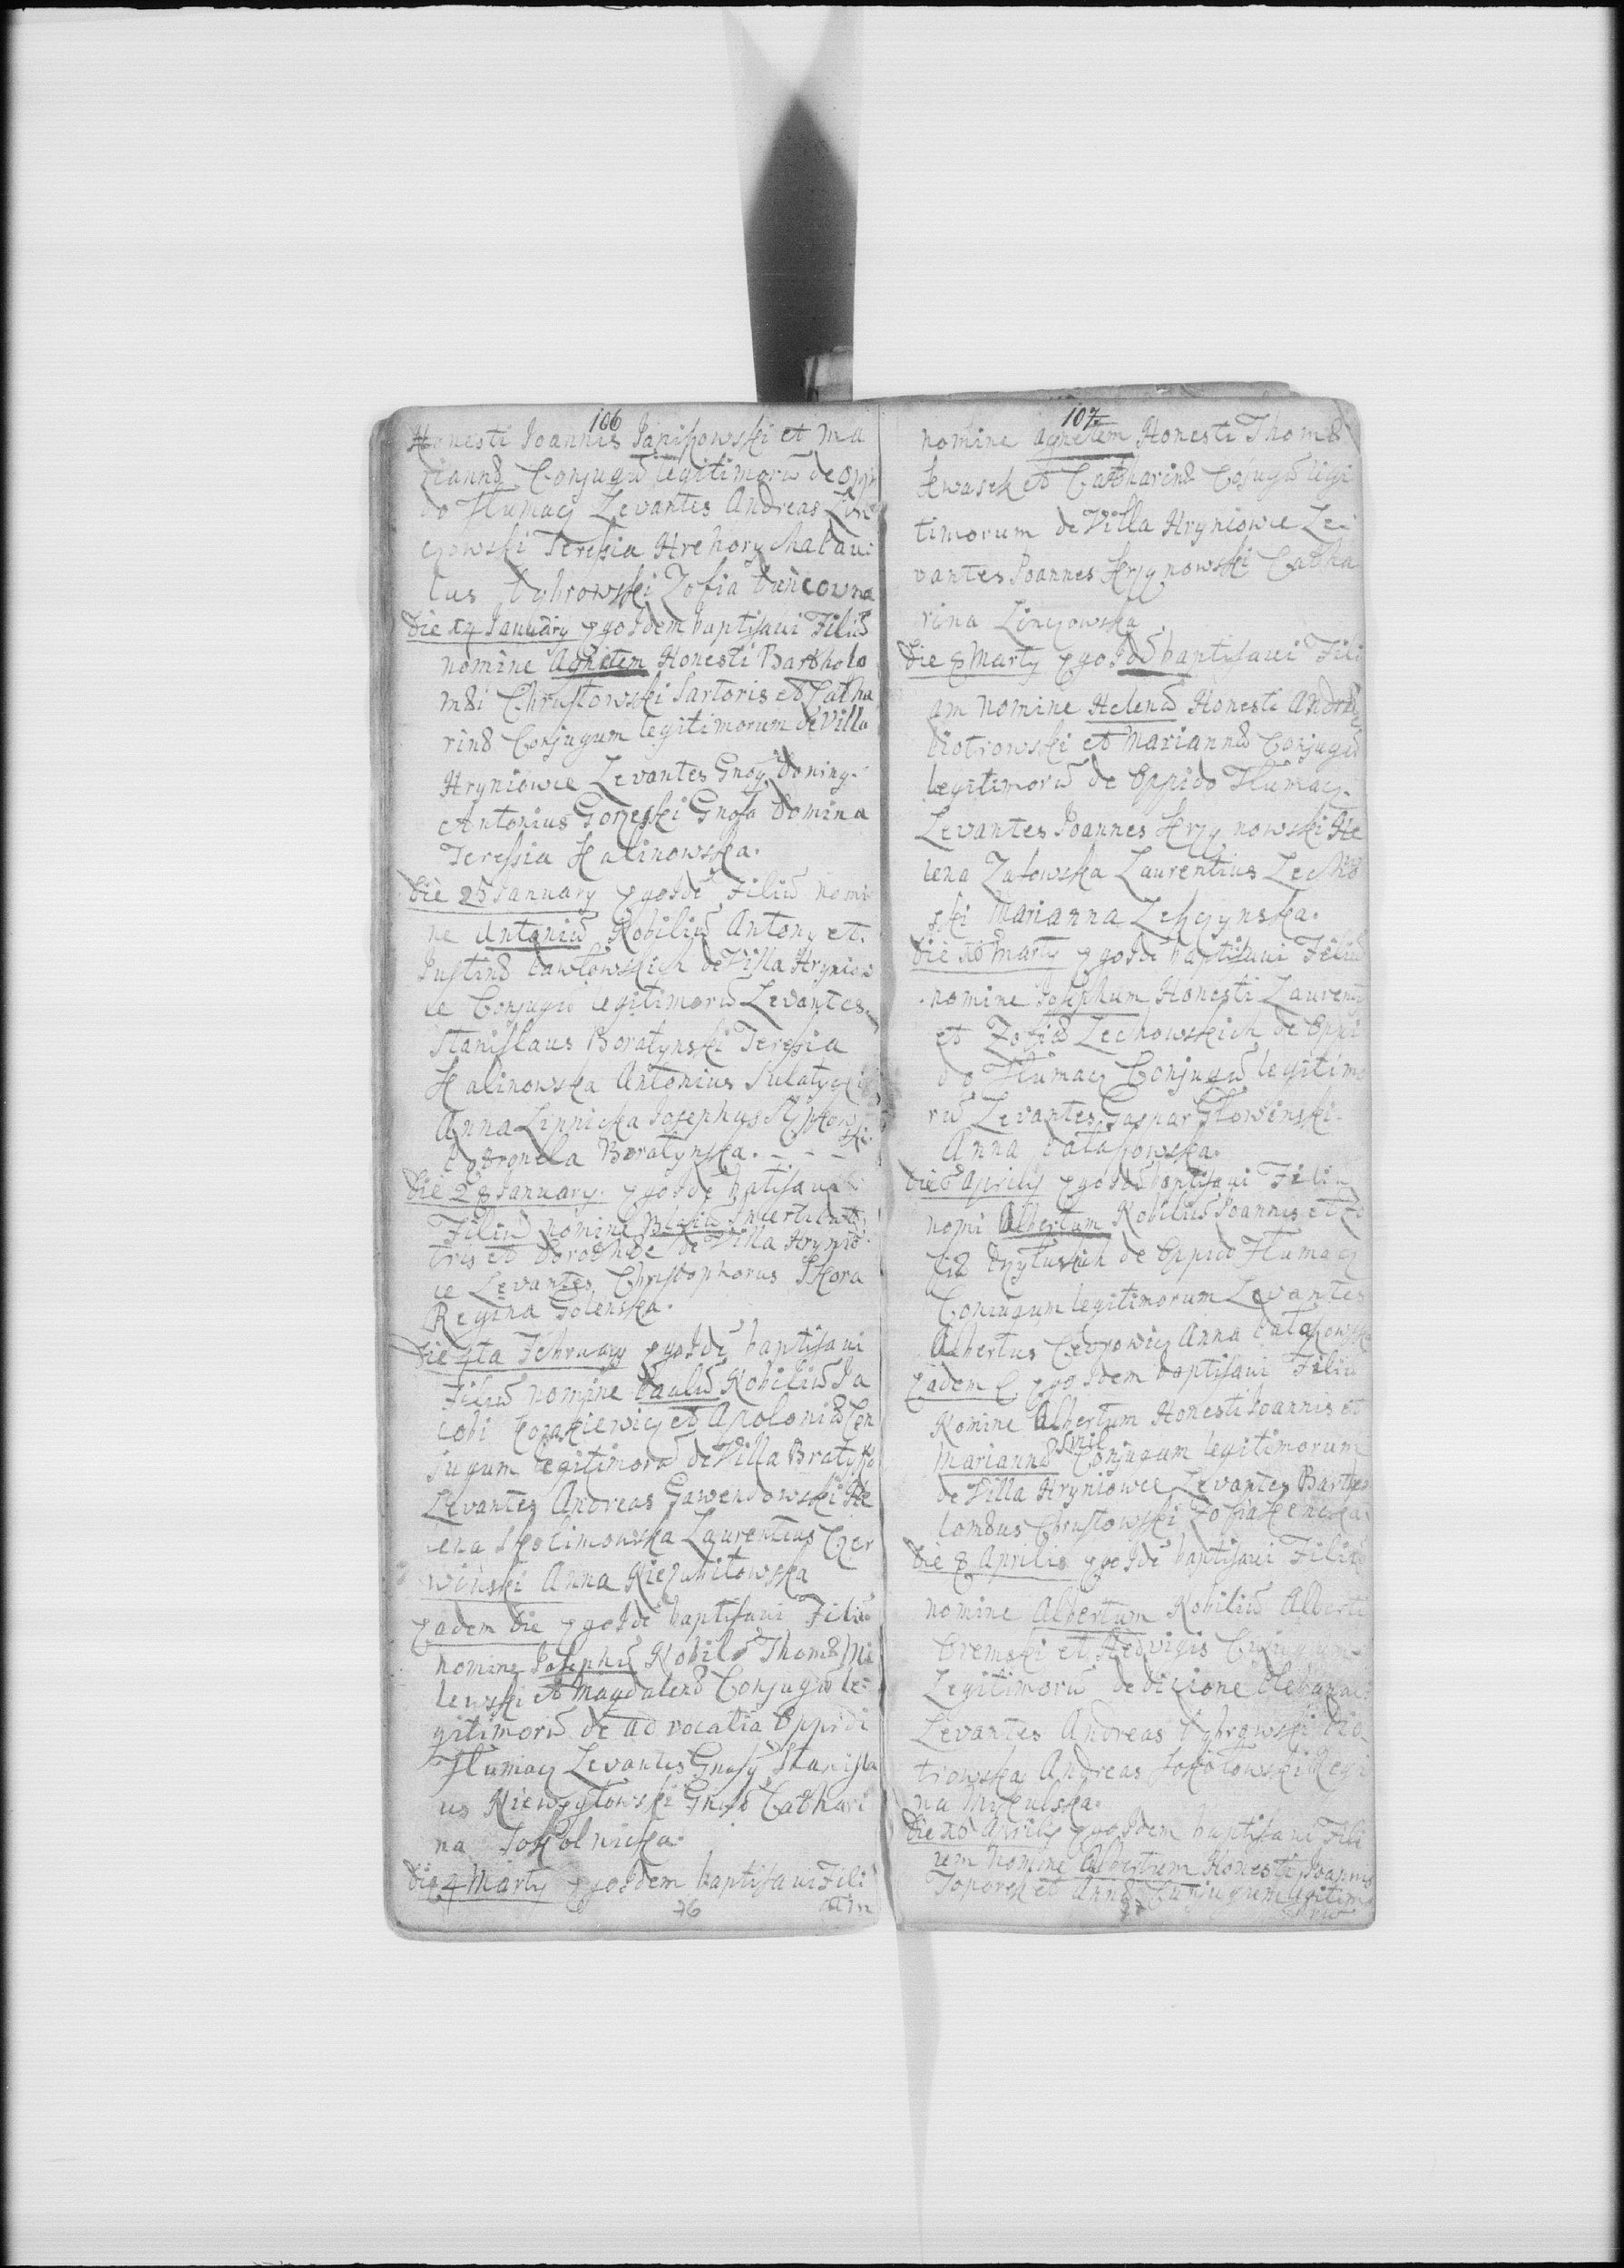 106
Honesti Joannis Janiszowski et Ma
riannæ Conjugũ legitimorũ de Oppi
do Tłumacz Levantes Andreas Lin
czowski Teressia Hrehory
tus Dybrowski Zofia Pancowna
Die 14 January ego Idem baptisavi Filiã
nomine Agnetem Honesti Bartholo
mæi Chrustowski Sartoris et Catha
rinæ Conjugum legitimorum de Villa
Hryniowce Levantes Gnosg Doming
Antonius Gorzeski Gnosa Domina
Teressia Kalinowska.
Die 25 January ego Idẽ Filiũ nomi
ne Antoniũ Nobiliũ Antony et
Justinæ Pawłowskich de Villa Hryniow
ce Conjugũ legitimorũ Levantes
Stanislaus Boratynski Teresia
Kalinowska Antonius Sulatycki
Anna Lipnicka Josephus
Petronela Boratynska. - - -
Die 28 January ego Idẽ batisavi
Filiũ nomine Blasiũ Incerti Pa
tris et Dorothæe de Villa Hrynio
ce Levantes Christophorus Skora
Regina Golenska.
Die 4ta February ego Idẽ baptisavi
Filiũ nomine Paulũ Nobiliũ Ja
cobi et Apoloniæ Con
jugum legitimorũ de Villa Bratysz
Levantes Andreas Gawendowski He
lena Skolimowska Laurentius Czer
winski Anna Niezabitowska
Eadem Die ego Idẽ baptisavi Filiũ
nomine Josephũ Nobiliũ Thomæ Mi
lewski et Magdalenæ Conjugũ le=
gitimorũ de advocatia Oppidi
Tłumacz Levantes Gnosg Stanisla
us Niewzytowski Gnosa Cathari
na Sokolnicka.
Die 4 Marty ego Idem baptisavi Fili
am
76
107
nomine Agnetem Honesti Thomæ
Kwasek et Catharinæ Cojugũ legi
timorum de Villa Hryniowce Le
vantes Joannes Krzynowski Catha
rina Linczowska
Die 8 Marty ego Idẽ baptisavi Fili
am nomine Helenã Honesti Andreæ
Piotrowski et Mariannæ Conjugũ
legitimorũ de Oppido Tłumacz.
Levantes Joannes Krzynowski He
lena Załowska Laurentius Lecho
ski Marianna
Die 10 Marty ego Idẽ baptisavi Filiũ
nomine Josephum Honesti Laurenty
et Zofiæ Lechowskich de Oppi
do Tłumacz Conjugũ legitimo
rũ Levantes Gaspar Głowinski.
Anna Pataszowska.
Die 6 Aprilis ego Idẽ baptisavi Filiũ
nomi Albertum Nobiliũ Joannis et Zo
fiæ de Oppido Tłumacz
Coniugum legitimorum Levantes
Albertus Anna Pataszowska
Eadem ego Idem baptisavi Filiũ
Nomine Albertum Honesti Joannis et
Mariannæ Smil Conjugum legitimorum
de Villa Hryniowce Levantes Bartho
lomæus Chrustowski Zofia
Die 8 Aprilis ego Idẽ baptisavi Filiũ
nomine Albertum Nobiliũ Alberti
Dremski et Hedvigis Conjugum
Legitimorũ de dicione Plebanal
Levantes Andreas Dybrowski Pio
trowska Andreas Sokołowski Regi
na Mikulska.
Die 10 Aprilis ego Idem baptisavi Fili
um nomine Albertum Honesti Joannis
Toporek et Annæ Conjugum legitimo
rũ
77